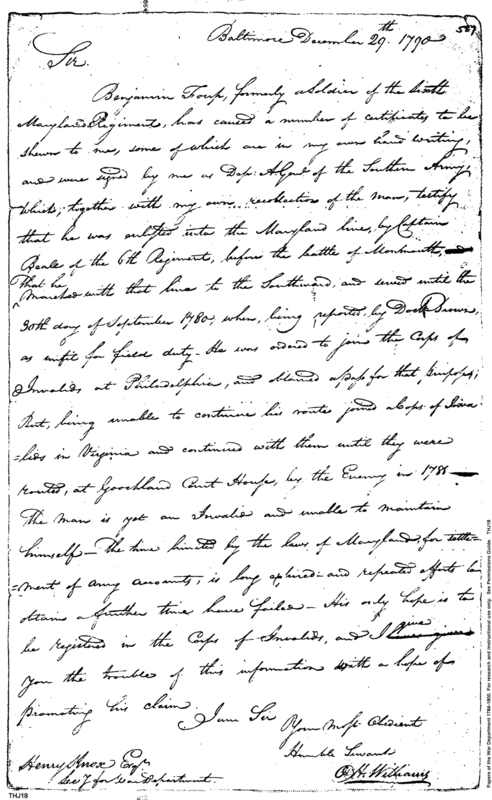 567
Baltimore December 29th. 1790
Sir
Benjamin formerly a Soldier of the sixth
Maryland Regiment, has caused a number of certificates to be
shewn to me, some of which are in my own hand writing,
and were signed by me as Dep: A. Genl of the Southern Army
which, together with my own recollection of the man, testify
that he was enlisted into the Maryland line, by Captain
Beale of the 6th Regiment, before the battle of Monmouth,
That he
Marched with that line to the Southward, and served until the
30th day of September 1780, when, being reported, by Doctr Brown,
as unfit for field duty. He was ordered to join the Corps of
Invalids at Philadelphia, and obtained a pass for that purpose;
But, being unable to continue his route joined a Corps of Inva
=lids in Virginia and continued with them until they were
routed, at Goochland Court House, by the Enemy in 1781
The man is yet an Invalid and unable to maintain
himself — The time limited by the laws of Maryland, for settle-
=ment of army accounts, is long expired: and repeated efforts to
obtain a further time have failed — His only hope is to
be registered in the Corps of Invalids, and I give
you the trouble of this information with a hope of
promoting his claim.
I am Sir
Your Most Obedient
Humble Servant
O. H. Williams
Henry Knox Esqr.
Secy for War Department
THJ18
Papers of the War Department 1784-1800. For research and instructional use only. See Permissions Guide. THJ18